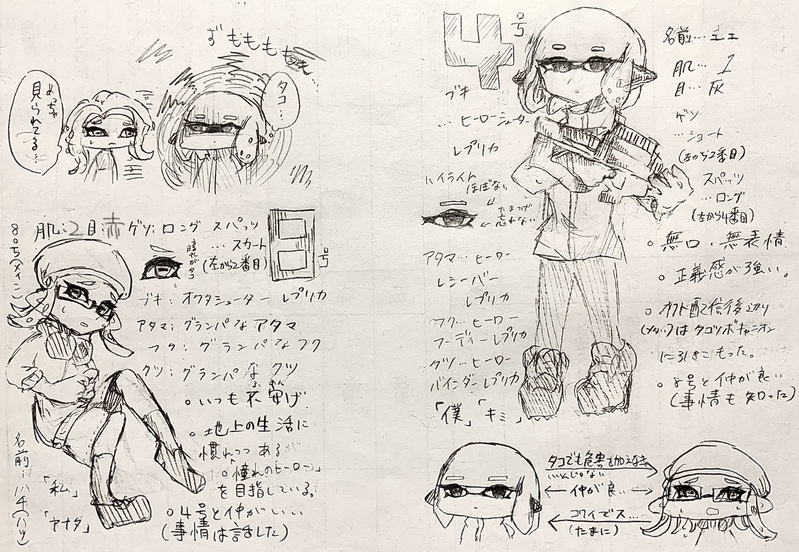 ずももももも
めちゃ
見られてる
タコ…
8号(メイン)
肌:2 目:赤 ゲソ:ロング スパッツ
…スカート
(左から2番目)
8号
ブキ:オクタシューター レプリカ
アタマ:グランパなアタマ
フク:グランパなフク
クツ:グランパなクツ
○いつも不安げ
ふあん
○地上の生活に
慣れつつあるが
○「憧れのヒーロー」
を目指している。
○4号と仲がいい
(事情は話した)
「私」
「アナタ」
4号
名前…
肌…1
目…灰
ゲソ
…ショート
(左から2番目)
スパッツ
…ロング
(左から4番目)
ブキ
…ヒーローシューター
レプリカ
ハイライト
ほぼない
アタマ…ヒーロー
レシーバー
レプリカ
フク…ヒーロー
フーディーレプリカ
クツ…ヒーロー
バインダーレプリカ
「僕」「キミ」
○無口・無表情
○正義感が強い。
○オクト配信後辺り
はタコツボキャニオン
に引きこもった。
○8号と仲が良い
(事情も知った)
タコでも危害を加えなきゃ
いいんじゃない
仲が良い
コワイデス…
(たまに)